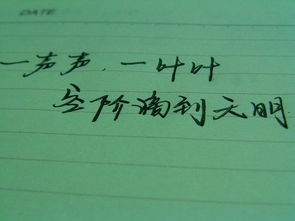 DATE
一声声.一叶叶
空阶滴到天明